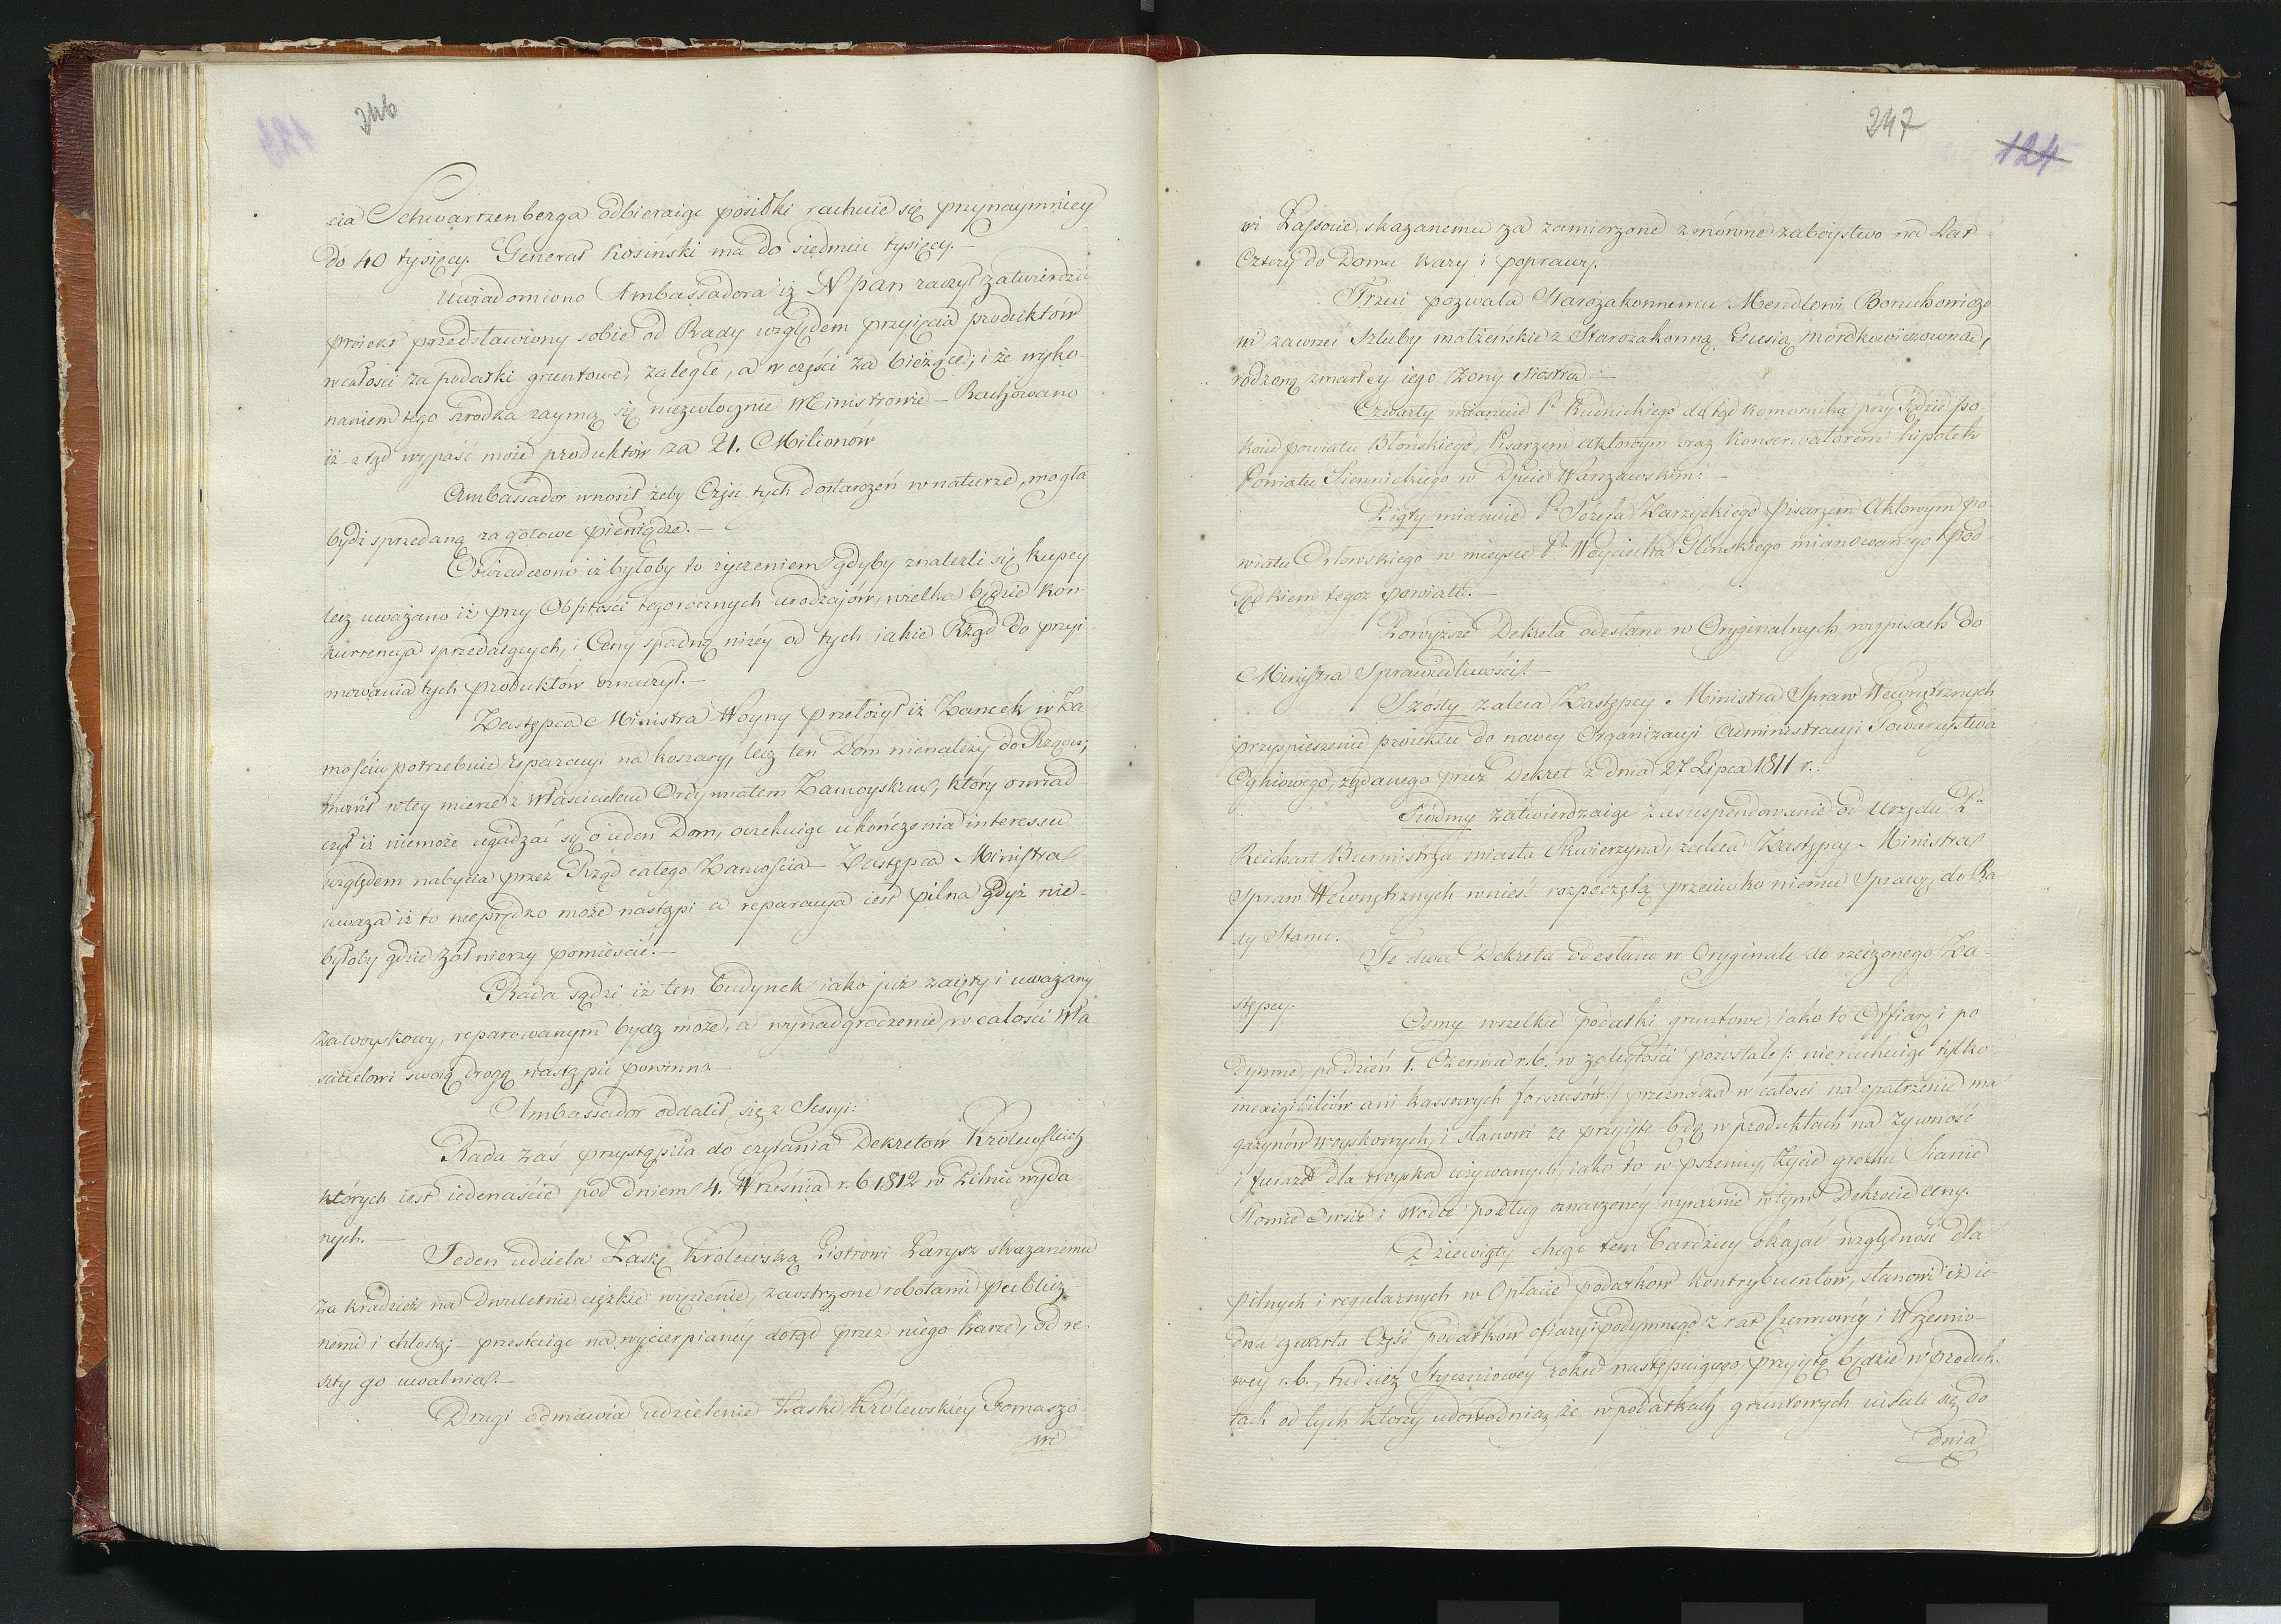 246
cia Schwartzenberga odbieraiąc posiłki rachuie się przynaymniey
do 40 tysięcy. Generał Kosinski ma do siedmiu tysięcy.—
Uwiadomiono Ambassadora iż N Pan raczył zatwierdzić
proiekt przedstawiony sobie od Rady względem przyięcia produktów
w całości za podatki gruntowe zaległe, a w części za bieżące; i że wyko-
naniem tego srodka zaymą się niezwłocznie Ministrowie — Rachowano
iż ztąd wypaść może produktów za 21. Milionów
Ambassador wnosił żeby Część tych dostarczeń w naturze, mogła
bydź sprzedaną za gotowe pieniądze.—
Oświadczono iż byłoby to życzeniem gdyby znalezli się kupcy
lecz uważano iż przy Obfitości tegorocznych urodzaiów, wielka będzie kon-
kurrencya sprzedaiących, i Ceny spadną niżey od tych iakie Rząd do przyi-
mowania tych produktów oznaczył.—
Zastępca Ministra Woyny przełożył iż Zamek w Za
mościu potrzebuie reparacyi na koszary, lecz ten Dom nienależy do Rządu,
mówił w tey mierze z Właścicielem Ordynatem Zamoyskim, który oświad-
czył iż niemoże ugadzać się o ieden Dom, oczekuiąc ukończenia interessu
względem nabycia przez Rząd całego Zamościa — Zastępca Ministra
uważa iż to nieprędko może nastąpi a reparacya iest pilna gdyż nie-
byłoby gdzie żołnierzy pomieścić.—
Rada sądzi iż ten budynek iako już zaięty i uważany
za woyskowy, reparowanym bydz może, a wynadgrodzenie w całości Wła
scicielowi swoią drogą nastąpić powinno
Ambassador oddalił się z Sessyi:
Rada zaś przystąpiła do czytania Dekretów Królewskich
których iest iedenaście pod dniem 4. Września r.b 1812 w Pilnic wyda-
nych.—
Jeden udziela Łaskę Królewską Piotrowi Larysz skazanemu
za kradzież na dwuletnie ciężkie więzienie, zaostrzone robotami publicz-
nemi i chłostą; — przestaiąc na wycierpianéy dotąd przez niego karze, od re-
szty go uwalnia.—
Drugi odmawia udzielenie Łaski Królewskiéy Tomaszo-
wi
247
124
wi Łassocie, skazanemu za zamierzone zmówne zaboystwo na Lat
Cztery do Domu kary i poprawy.
Trzeci pozwala Starozakonnemu Mendlowi Boruchowiczo
wi zawrzeć szluby małżeńskie z Starozakonną Gusią Mordkowiczowną,
rodzoną zmarłey iego żony siostrą:—
Czwarty mianuie P. Rudnickiego dotąd komornika przy Sądzie po
koiu powiatu Błońskiego, Pisarzem aktowym oraz konserwatorem hipotek
Powiatu Siennickiego w Dpcie Warszawskim:—
Piąty mianuie P. Józefa Zarzyckiego Pisarzem Aktowym po-
wiatu Orłowskiego w mieysce P. Woyciecha Glinskiego mianowanego pod
sędkiem tegoż powiatu.—
Powyższe Dekreta odesłano w Oryginalnych wypisach do
Ministra Sprawiedliwości.—
Szósty zaleca Zastępcy Ministra Spraw Wewnętrznych
przyspieszenie proiektu do nowey Organizacyi Administracyi Towarzystwa
Ogniowego, żądanego przez Dekret z dnia 27 Lipca 1811 r.
Siódmy zatwierdzaiąc zasuspendowanie od Urzędu P.
Reichart Burmistrza miasta Skwierzyna, zaleca Zastępcy Ministra
Spraw Wewnętrznych wnieść rozpoczętą przeciwko niemu Sprawę do Ra
dy Stanu.
Te dwa Dekreta odesłano w Oryginale do rzeczonego Za-
stępcy.
Osmy wszelkie podatki gruntowe, iako to Offiary i po
dymne po dzień 1. Czerwca r.b. w zaległości pozostałe /: nierachuiąc tylko
inexigibiliów ani kassowych forszusów:/ przeznacza w całości na opatrzenie ma
gazynów woyskowych, i stanowi że przyięte będą w produktach na żywność
i furaże dla woyska używanych, iako to w pszenicy, życie grochu Sianie
słomie Owsie i Wodce podług oznaczoney wyraznie w tym Dekrecie ceny.
Dziewiąty chcąc tem bardziey okazać względność dla
pilnych i regularnych w Opłacie podatków kontrybuentów, stanowi iż ie-
dna czwarta Część podatków ofiary i podymnego z rat Czerwcowéy i Wrześnio-
wey r.b., tudzież Styczniowey roku następuiącego przyiętą będzie w produk-
tach od tych którzy udowodnią że w podatkach gruntowych uiścili się do
dnia